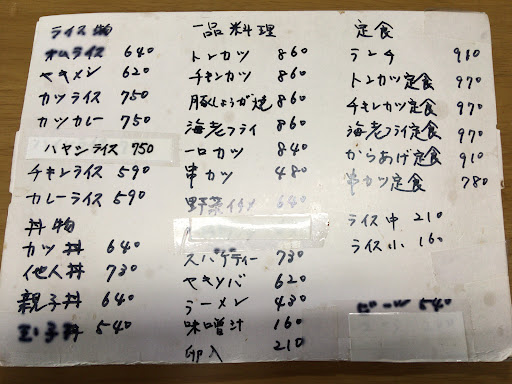 ライス物
オムライス 640
ヤキメシ 620
カツライス 750
カツカレー 750
ハヤシライス 750
チキンライス 590
カレーライス 590
丼物
カツ丼 640
他人丼 730
親子丼 640
玉子丼 540
一品料理
トンカツ 860
チキンカツ 860
豚しょうが焼 860
海老フライ 860
一口カツ 840
串カツ 480
野菜イタメ 640
スパゲティー 730
ヤキソバ 620
ラーメン 430
味噌汁 160
卵入 210
定食
ランチ 910
トンカツ定食 970
チキンカツ定食 970
海老フライ定食 970
からあげ定食 910
串カツ定食 780
ライス中 210
ライス小 160
ビール 540